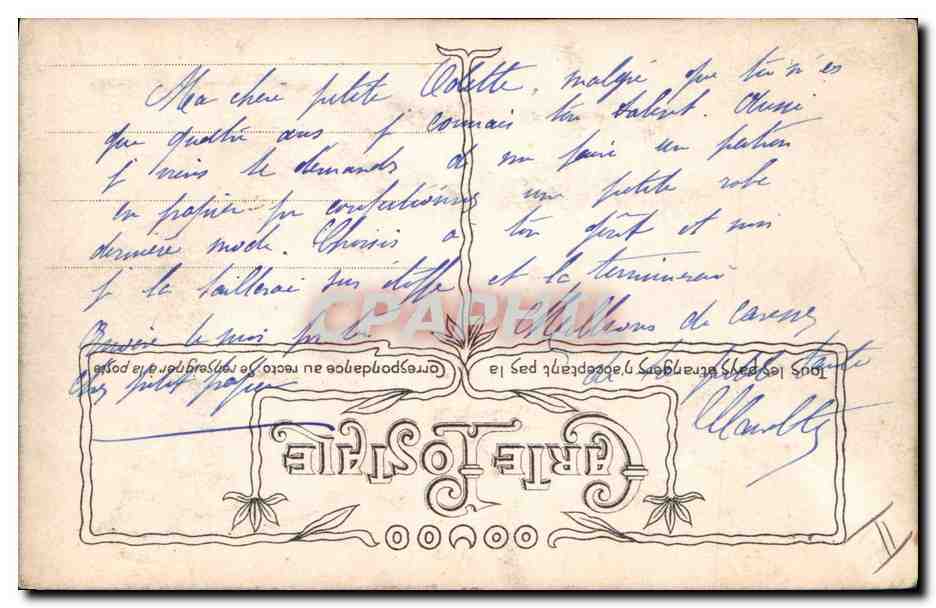 Ma chère petite Odette, malgré que tu n'es
que quatre ans je connais ton talent. Aussi
je viens te demander de me faire un patron
en papier pr confectionner une petite robe
dernière mode. Choisis à ton goût et moi
je la taillerai sur étoffe et la terminerai
le moi Millions de caresses
de ta tante
petit papier
Tous les pays étrangers n'acceptant pas la
Correspondance au recto, se renseigner à la poste
CARTE POSTALE
CPAPHIL
II